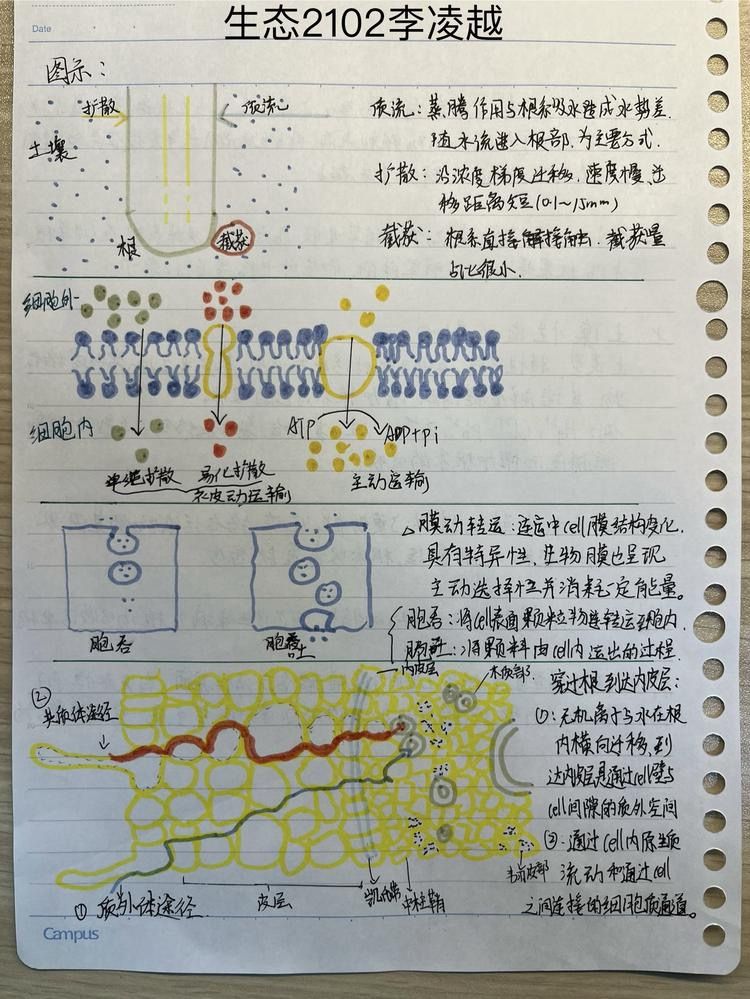 生态2102李凌越
Date
图示：
扩散
质流
土壤
根
截获
质流：蒸腾作用与根系吸水造成水势差.
随水流进入根部,为主要方式.
扩散：沿浓度梯度迁移,速度慢,迁
移距离短(0.1~15mm)
截获：根系直接接触.截获量
占比很小.
细胞外
细胞内
ATP
ADP+Pi
单纯扩散
易化扩散
被动运输
主动运输
胞吞
胞吐
△膜动转运：运运中cell膜结构变化,
具有特异性,生物膜也呈现
主动选择性并消耗一定能量。
胞吞：将cell表面颗粒物连转运至胞内.
胞吐：将颗料由cell内运出的过程.
内皮层
木质部
②
共质体途径
穿过根到达内皮层：
①：无机离子与水在根
内横向迁移,到
达内皮层是通过cell壁与
cell间隙的质外空间
②：通过cell内原生质
流动和通过cell
之间连接的细胞质通道。
韧皮部
① 质外体途径
皮层
凯氏带
中柱鞘
Campus